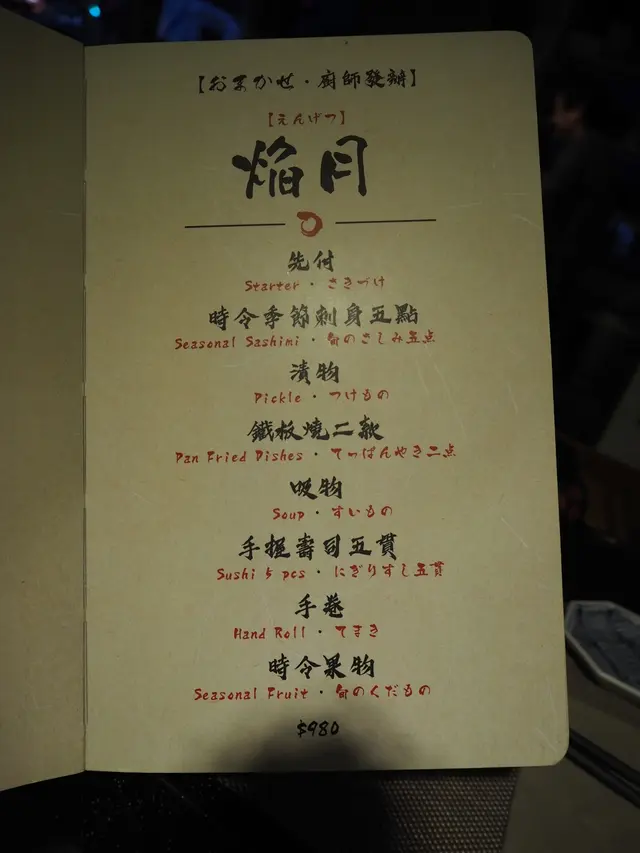 【おまかせ・廚師發辦】
【えんげつ】
焔月
先付
Starter・さきづけ
時令季節刺身五點
Seasonal Sashimi・旬のさしみ五点
漬物
Pickle・つけもの
鐵板燒二款
Pan Fried Dishes・てっぱんやき二点
吸物
Soup・すいもの
手握壽司五貫
Sushi 5 pcs・にぎりすし五貫
手卷
Hand Roll・てまき
時令果物
Seasonal Fruit・旬のくだもの
$980